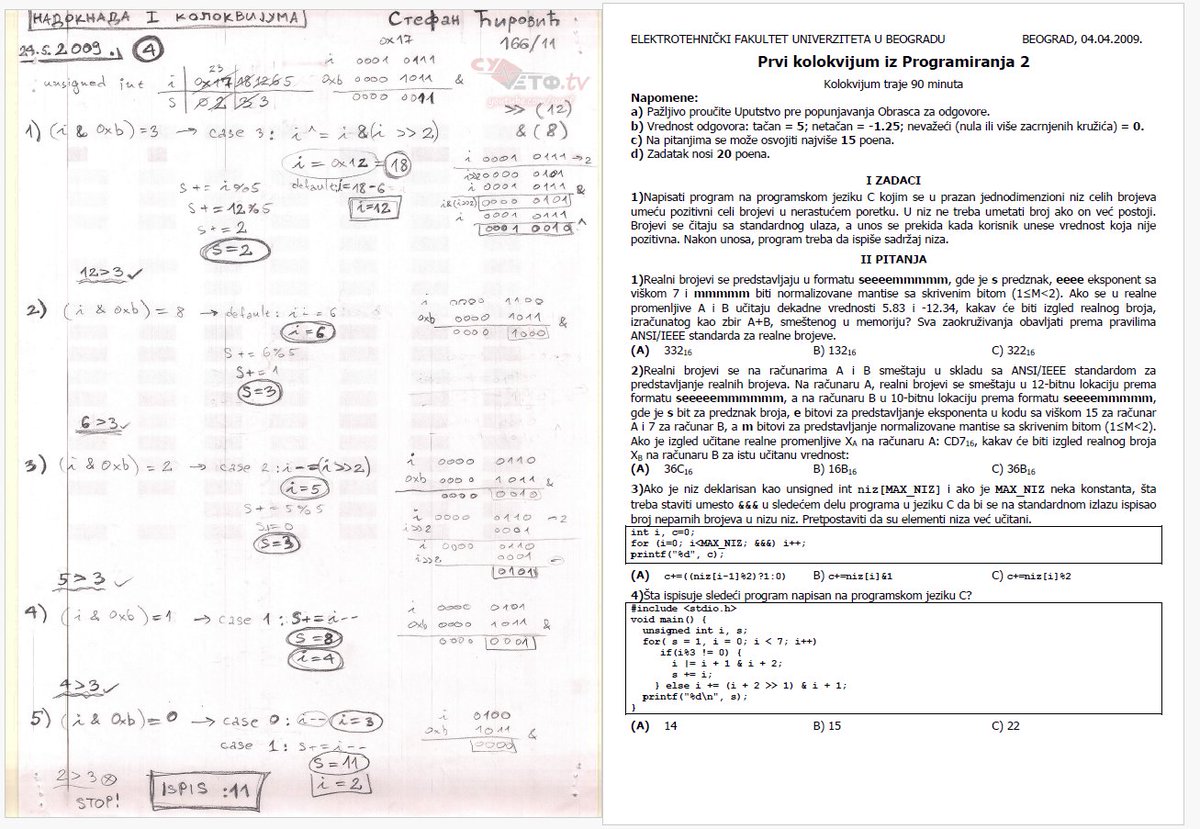 НАДОКНАДА I КОЛОКВИЈУМА
Стефан Ћировић
29.5.2009. 4
0x17
166/11
unsigned int
23
i 0x17 18 12 6 5
S 0 2 3 3
i 0000 0111
0xb 0000 1011 &
0000 0011
>> (12)
& (8)
1) (i & 0xb)=3 → case 3: i^= i&(i >> 2)
i = 0x12 = 18
s+= i%5
default: i=18-6
s+= 12%5
i=12
s+= 2
S=2
i 0001 0111 →2
i>>2 0000 0101
i 0001 0111 &
i&(i>>2) 0000 0101
i 0001 0111
0001 0010 ^
12>3 ✓
2) (i & 0xb) = 8 → default: i-= 6
i=6
s+= 6%5
s+= 1
S=3
i 0000 1100
0xb 0000 1011 &
0000 1000
6>3 ✓
3) (i & 0xb) = 2 → case 2: i-=(i>>2)
i=5
s+= 5%5
s+=0
S=3
i 0000 0110
0xb 0000 1011 &
0000 0010
i 0000 0110 →2
i>>2 0001
i 0000 0110
i>>2 0001 -
0101
5>3 ✓
4) (i & 0xb)=1 → case 1: S+=i--
S=8
i=4
i 0000 0101
0xb 0000 1011 &
0000 0001
4>3 ✓
5) (i & 0xb)=0 → case 0: i-- i=3
case 1: s+=i--
S=11
i=2
i 0100
0xb 1011 &
0000
2>3 ⊗
STOP!
ISPIS :11
ELEKTROTEHNIČKI FAKULTET UNIVERZITETA U BEOGRADU BEOGRAD, 04.04.2009.
Prvi kolokvijum iz Programiranja 2
Kolokvijum traje 90 minuta
Napomene:
a) Pažljivo proučite Uputstvo pre popunjavanja Obrasca za odgovore.
b) Vrednost odgovora: tačan = 5; netačan = -1.25; nevažeći (nula ili više zacrnjenih kružića) = 0.
c) Na pitanjima se može osvojiti najviše 15 poena.
d) Zadatak nosi 20 poena.
I ZADACI
1)Napisati program na programskom jeziku C kojim se u prazan jednodimenzioni niz celih brojeva
umeću pozitivni celi brojevi u nerastućem poretku. U niz ne treba umetati broj ako on već postoji.
Brojevi se čitaju sa standardnog ulaza, a unos se prekida kada korisnik unese vrednost koja nije
pozitivna. Nakon unosa, program treba da ispiše sadržaj niza.
II PITANJA
1)Realni brojevi se predstavljaju u formatu seeeemmmmm, gde je s predznak, eeee eksponent sa
viškom 7 i mmmmm biti normalizovane mantise sa skrivenim bitom (1≤M<2). Ako se u realne
promenljive A i B učitaju dekadne vrednosti 5.83 i -12.34, kakav će biti izgled realnog broja,
izračunatog kao zbir A+B, smeštenog u memoriju? Sva zaokruživanja obavljati prema pravilima
ANSI/IEEE standarda za realne brojeve.
(A) 332₁₆ B) 132₁₆ C) 322₁₆
2)Realni brojevi se na računarima A i B smeštaju u skladu sa ANSI/IEEE standardom za
predstavljanje realnih brojeva. Na računaru A, realni brojevi se smeštaju u 12-bitnu lokaciju prema
formatu seeeeemmmmmm, a na računaru B u 10-bitnu lokaciju prema formatu seeeemmmmm,
gde je s bit za predznak broja, e bitovi za predstavljanje eksponenta u kodu sa viškom 15 za računar
A i 7 za računar B, a m bitovi za predstavljanje normalizovane mantise sa skrivenim bitom (1≤M<2).
Ako je izgled učitane realne promenljive X_A na računaru A: CD7₁₆, kakav će biti izgled realnog broja
X_B na računaru B za istu učitanu vrednost:
(A) 36C₁₆ B) 16B₁₆ C) 36B₁₆
3)Ako je niz deklarisan kao unsigned int niz[MAX_NIZ] i ako je MAX_NIZ neka konstanta, šta
treba staviti umesto &&& u sledećem delu programa u jeziku C da bi se na standardnom izlazu ispisao
broj neparnih brojeva u nizu niz. Pretpostaviti da su elementi niza već učitani.
int i, c=0;
for (i=0; i<MAX_NIZ; &&&) i++;
printf("%d", c);
(A) c+=((niz[i-1]%2)?1:0) B) c+=niz[i]&1 C) c+=niz[i]%2
4)Šta ispisuje sledeći program napisan na programskom jeziku C?
#include <stdio.h>
void main() {
unsigned int i, s;
for( s = 1, i = 0; i < 7; i++)
if(i%3 != 0) {
i |= i + 1 & i + 2;
s += i;
} else i += (i + 2 >> 1) & i + 1;
printf("%d\n", s);
}
(A) 14 B) 15 C) 22